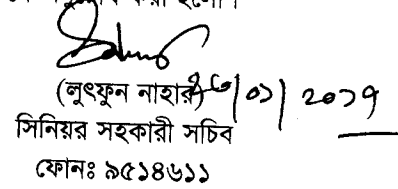 করা হলো।
(লুৎফুন নাহার) /০১/ ২০১৭
সিনিয়র সহকারী সচিব
ফোনঃ ৯৫১৪৬১১